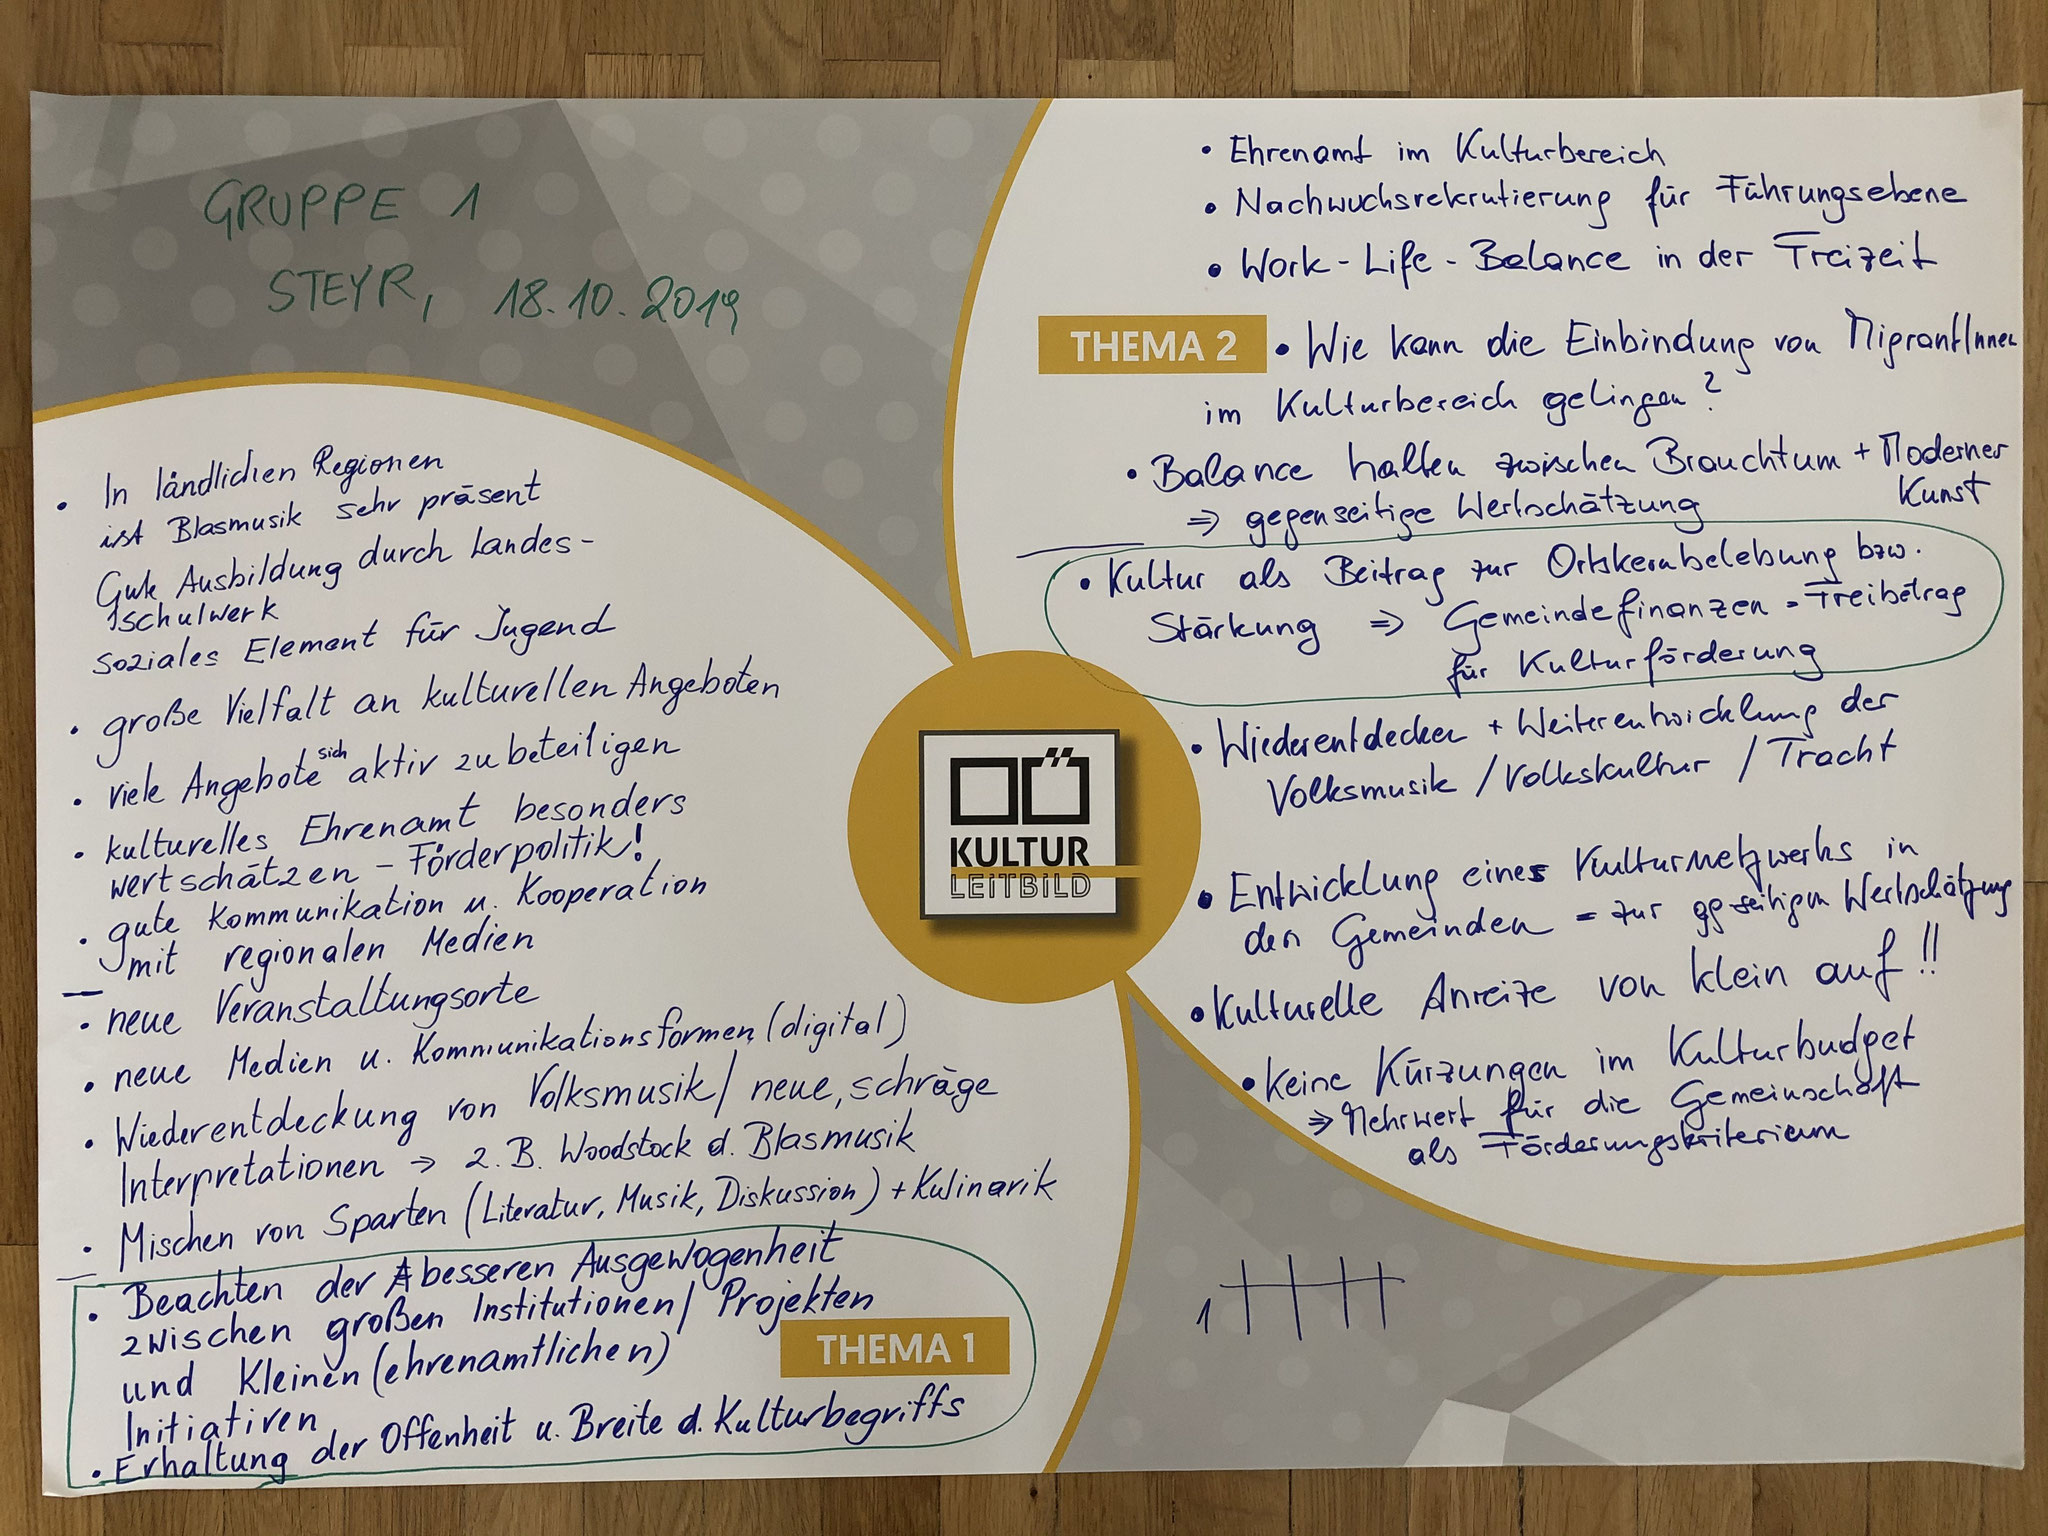 GRUPPE 1
STEYR, 18.10.2019
• In ländlichen Regionen
ist Blasmusik sehr präsent
Gute Ausbildung durch Landes-
schulwerk
soziales Element für Jugend
• große Vielfalt an kulturellen Angeboten
• viele Angebote sich aktiv zu beteiligen
• kulturelles Ehrenamt besonders
wertschätzen – Förderpolitik!
• gute Kommunikation u. Kooperation
mit regionalen Medien
• neue Veranstaltungsorte
• neue Medien u. Kommunikationsformen (digital)
• Wiederentdeckung von Volksmusik / neue, schräge
Interpretationen → z.B. Woodstock d. Blasmusik
• Mischen von Sparten (Literatur, Musik, Diskussion) + Kulinarik
• Beachten der besseren Ausgewogenheit
zwischen großen Institutionen / Projekten
und Kleinen (ehrenamtlichen)
Initiativen
THEMA 1
• Erhaltung der Offenheit u. Breite d. Kulturbegriffs
OÖ
KULTUR
LEITBILD
• Ehrenamt im Kulturbereich
• Nachwuchsrekrutierung für Führungsebene
• Work-Life-Balance in der Freizeit
THEMA 2
• Wie kann die Einbindung von MigrantInnen
im Kulturbereich gelingen?
• Balance halten zwischen Brauchtum + Moderner
Kunst
⇒ gegenseitige Wertschätzung
• Kultur als Beitrag zur Ortskernbelebung bzw.
Stärkung ⇒ Gemeindefinanzen - Freibetrag
für Kulturförderung
• Wiederentdecken + Weiterentwicklung der
Volksmusik / Volkskultur / Tracht
• Entwicklung eines Kulturnetzwerks in
den Gemeinden - zur gg-seitigen Wertschätzung
• Kulturelle Anreize von klein auf!!
• Keine Kürzungen im Kulturbudget
⇒ Mehrwert für die Gemeinschaft
als Förderungskriterium
1